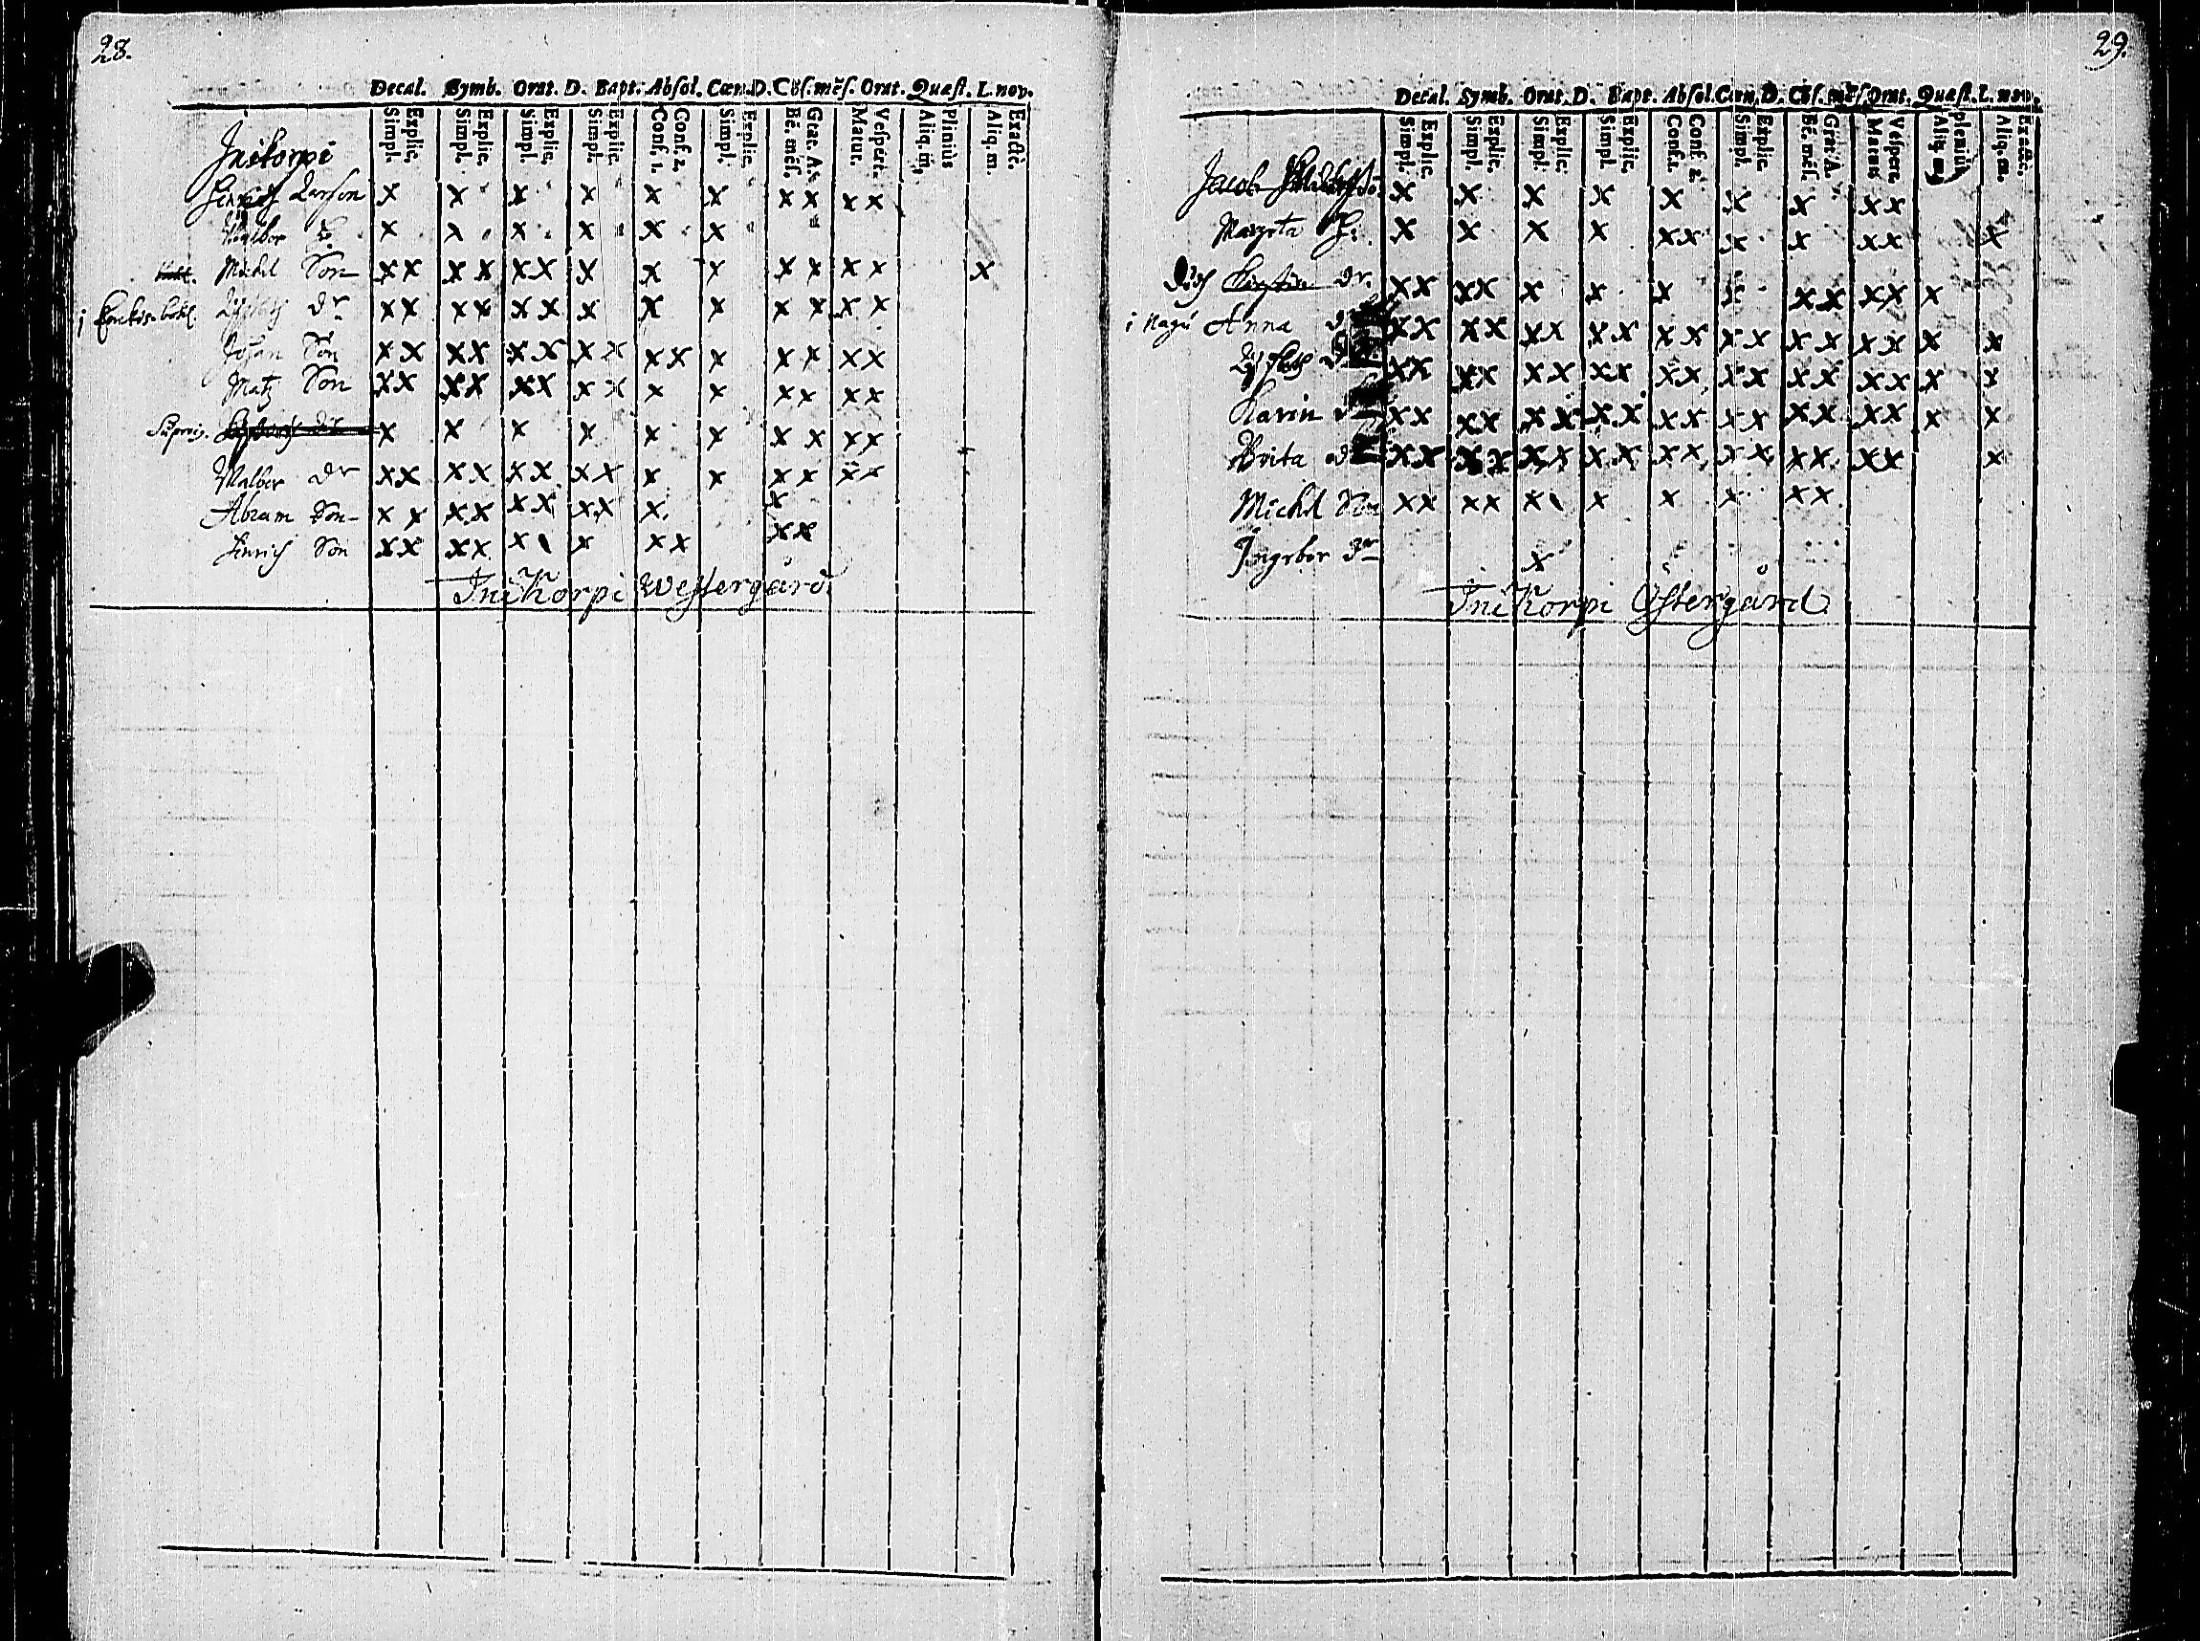 28.
Decal. Symb. Orat. D. Bapt. Absol. Cœn. D. Cōs. mēs. Orat. Quæst. L. nov.
Simpl. Explic. Simpl. Explic. Simpl. Explic. Simpl. Explic. Conf. 1. Conf. 2. Simpl. Explic. Bē. mēs. Grac. A. Matur. Vespert. Aliq. m. Plenius Aliq. m. Exactè.
Inikorpi
Larson x x x x x x x x x x
Walbor H. x x x x x x
Michel Son x x x x x x x x x x x x x x
i dr x x x x x x x x x x x x x
Johan Son x x x x x x x x x x x x x x x
Matz Son x x x x x x x x x x x x x x
x x x x x x x x x x
Walber dr x x x x x x x x x x x x x x
Abram Son x x x x x x x x x x
Hinrich Son x x x x x x x x x x
Inikorpi Westergård
29.
Decal. Symb. Orat. D. Bapt. Absol. Cœn. D. Cōs. mēs. Orat. Quæst. L. nov.
Simpl. Explic. Simpl. Explic. Simpl. Explic. Simpl. Explic. Conf. 1. Conf. 2. Simpl. Explic. Bē. mēs. Grat. A. Matur Vespere. Aliq. m. pleniùs Aliq. m. Exactè.
Jacob x x x x x x x x x
Margeta H. x x x x x x x x x x x
Kirstin dr. x x x x x x x x x x x x x x
i Nagu Anna x x x x x x x x x x x x x x x x x x
x x x x x x x x x x x x x x x x x x
Karin x x x x x x x x x x x x x x x x x x
Brita x x x x x x x x x x x x x x x x x
Michel Son x x x x x x x x x x
Ingebor dr x
Inikorpi Östergård